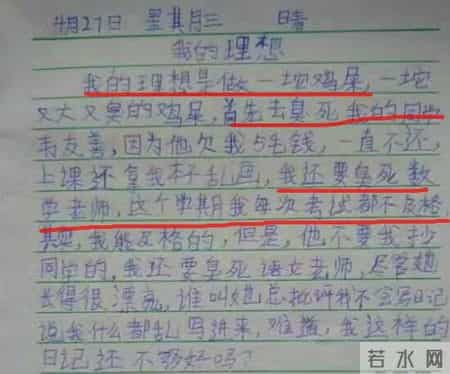 4月27日 星其月三 晴
我的理想
我的理想是做一坨鸡屎,一坨
又大又臭的鸡屎,首先去臭死我的同学
韦友善,因为他欠我5毛钱,一直不还,
上课还拿我本子乱画,我还要臭死数
学老师,这个学期我每次考试都不及格,
其实,我能及格的,但是,他不要我抄
同学的,我还要臭死语文老师,尽管她
长得很漂亮,谁叫她总批评我不会写日记
说我什么都乱写进来,难道,我这样的
日记还不够好吗?
若水网